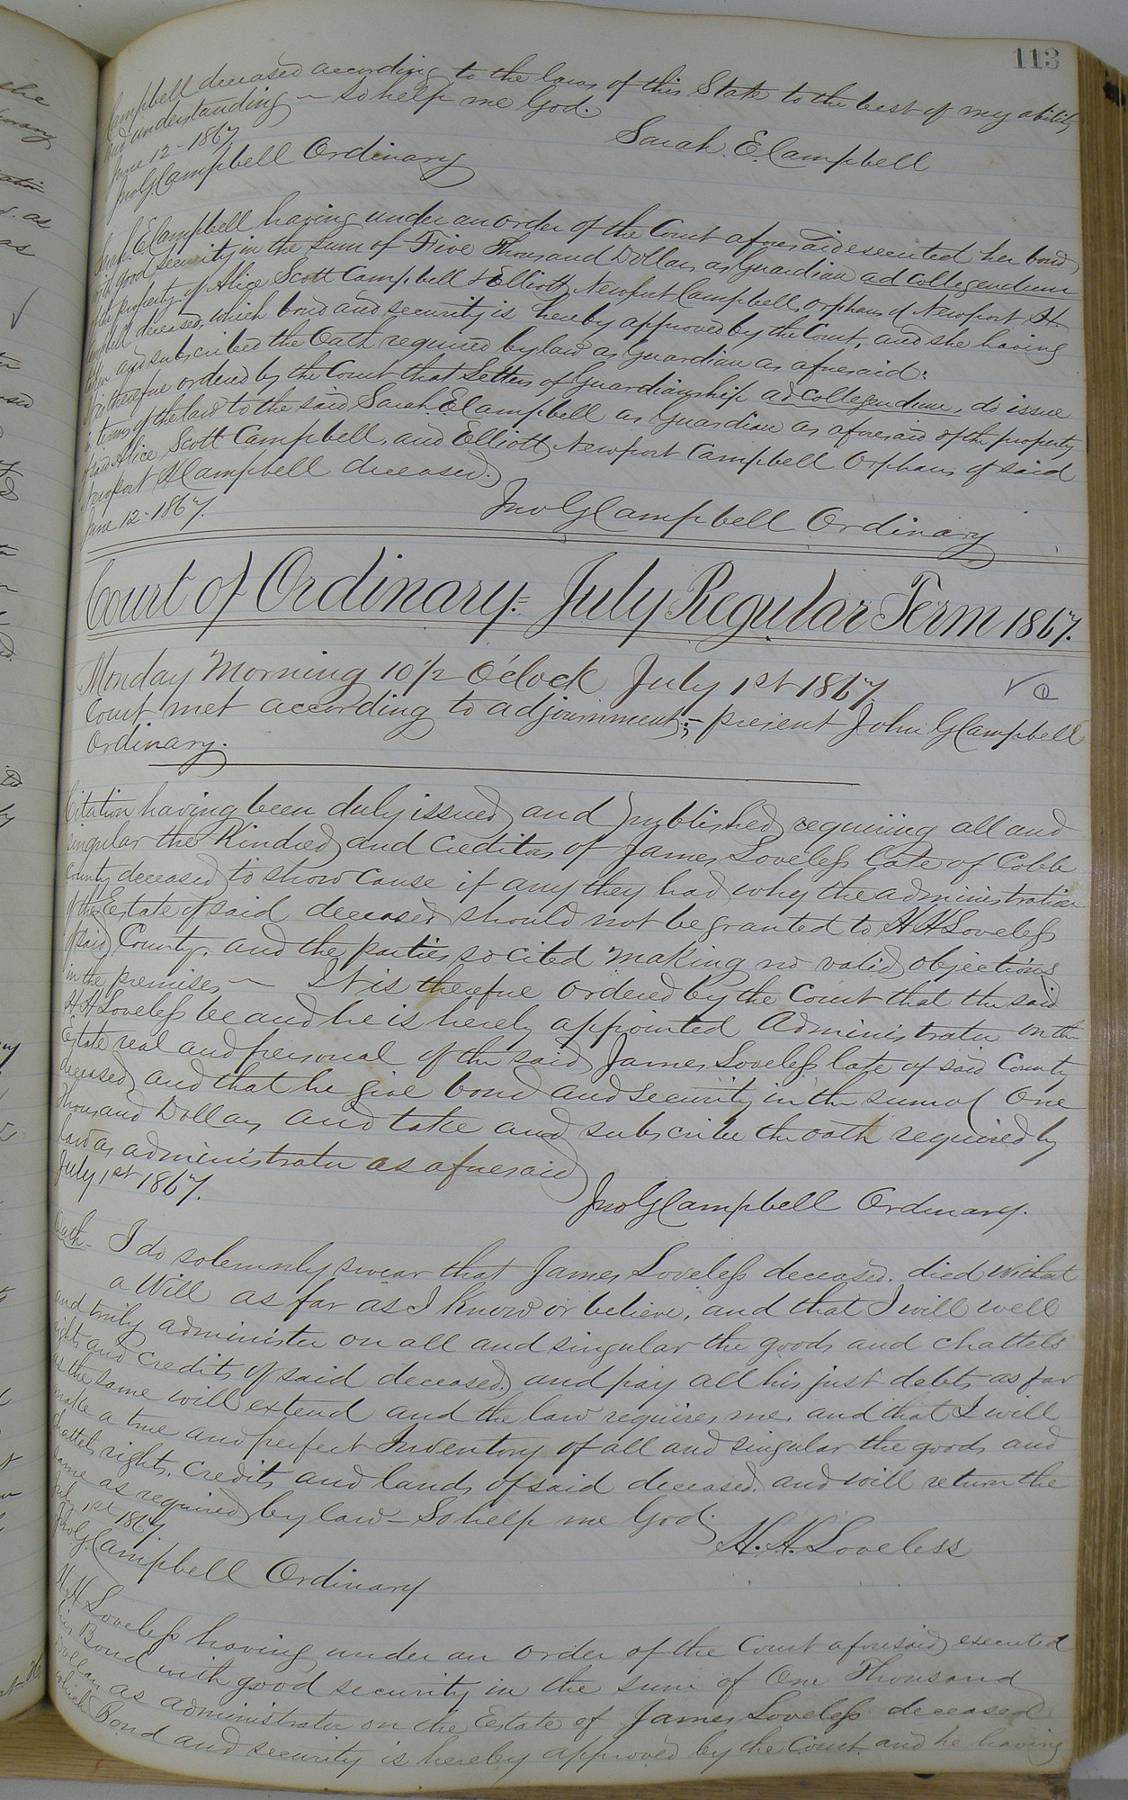 113
Campbell deceased according to the laws of this State to the best of my ability
and understanding - so help me God.
Sarah. E. Campbell
June 12 - 1867
Jno G. Campbell Ordinary
E Campbell having under an order of the Court aforesaid executed her bond
with good security in the sum of Five Thousand Dollars as Guardian ad Collegendum
of the property of Alice Scott Campbell & Elliott Newport Campbell, orphans of Newport H.
Campbell deceased, which bond and security is hereby approved by the Court, and she having
taken and subscribed the Oath required by law as Guardian as aforesaid.
It is therefore ordered by the Court that Letters of Guardianship ad Collegendum, do issue
in terms of the law to the said Sarah. E Campbell as Guardian as aforesaid of the property
of said Alice Scott Campbell, and Elliott Newport Campbell Orphans of said
Newport H Campbell deceased.
June 12 - 1867.
Jno G Campbell Ordinary
Court of Ordinary = July Regular Term 1867.
Monday Morning 10 1/2 O'clock July 1st 1867
Court met according to adjournment; - present John G Campbell
Ordinary.
Citation having been duly issued and published requiring all and
singular the Kindred and Creditors of James Loveless late of Cobb
County deceased to show cause if any they had why the administration
of the Estate of said deceased should not be granted to H H Loveless
of said County, and the parties so cited making no valid objections
in the premises - It is therefore ordered by the Court that the said
H H Loveless be and he is hereby appointed Administrator on the
Estate real and personal of the said James Loveless late of said County
deceased and that he give bond and security in the sum of One
Thousand Dollars and take and subscribe the oath required by
law as administrator as aforesaid
July 1st 1867.
Jno G Campbell Ordinary.
Oath - I do solemnly swear that James Loveless deceased. died without
a Will as far as I know or believe, and that I will well
and truly administer on all and singular the goods and chattels
rights and credits of said deceased, and pay all his just debts as far
as the same will extend and the law requires me, and that I will
make a true and perfect Inventory of all and singular the goods and
chattels rights, credits and lands of said deceased and will return the
same as required by law - So help me God.
H. H. Loveless
July 1st 1867
Jno G. Campbell Ordinary
H H Loveless having under an order of the Court aforesaid executed
his Bond with good security in the sum of One Thousand
Dollars as administrator on the Estate of James Loveless deceased
which Bond and security is hereby approved by the Court and he having